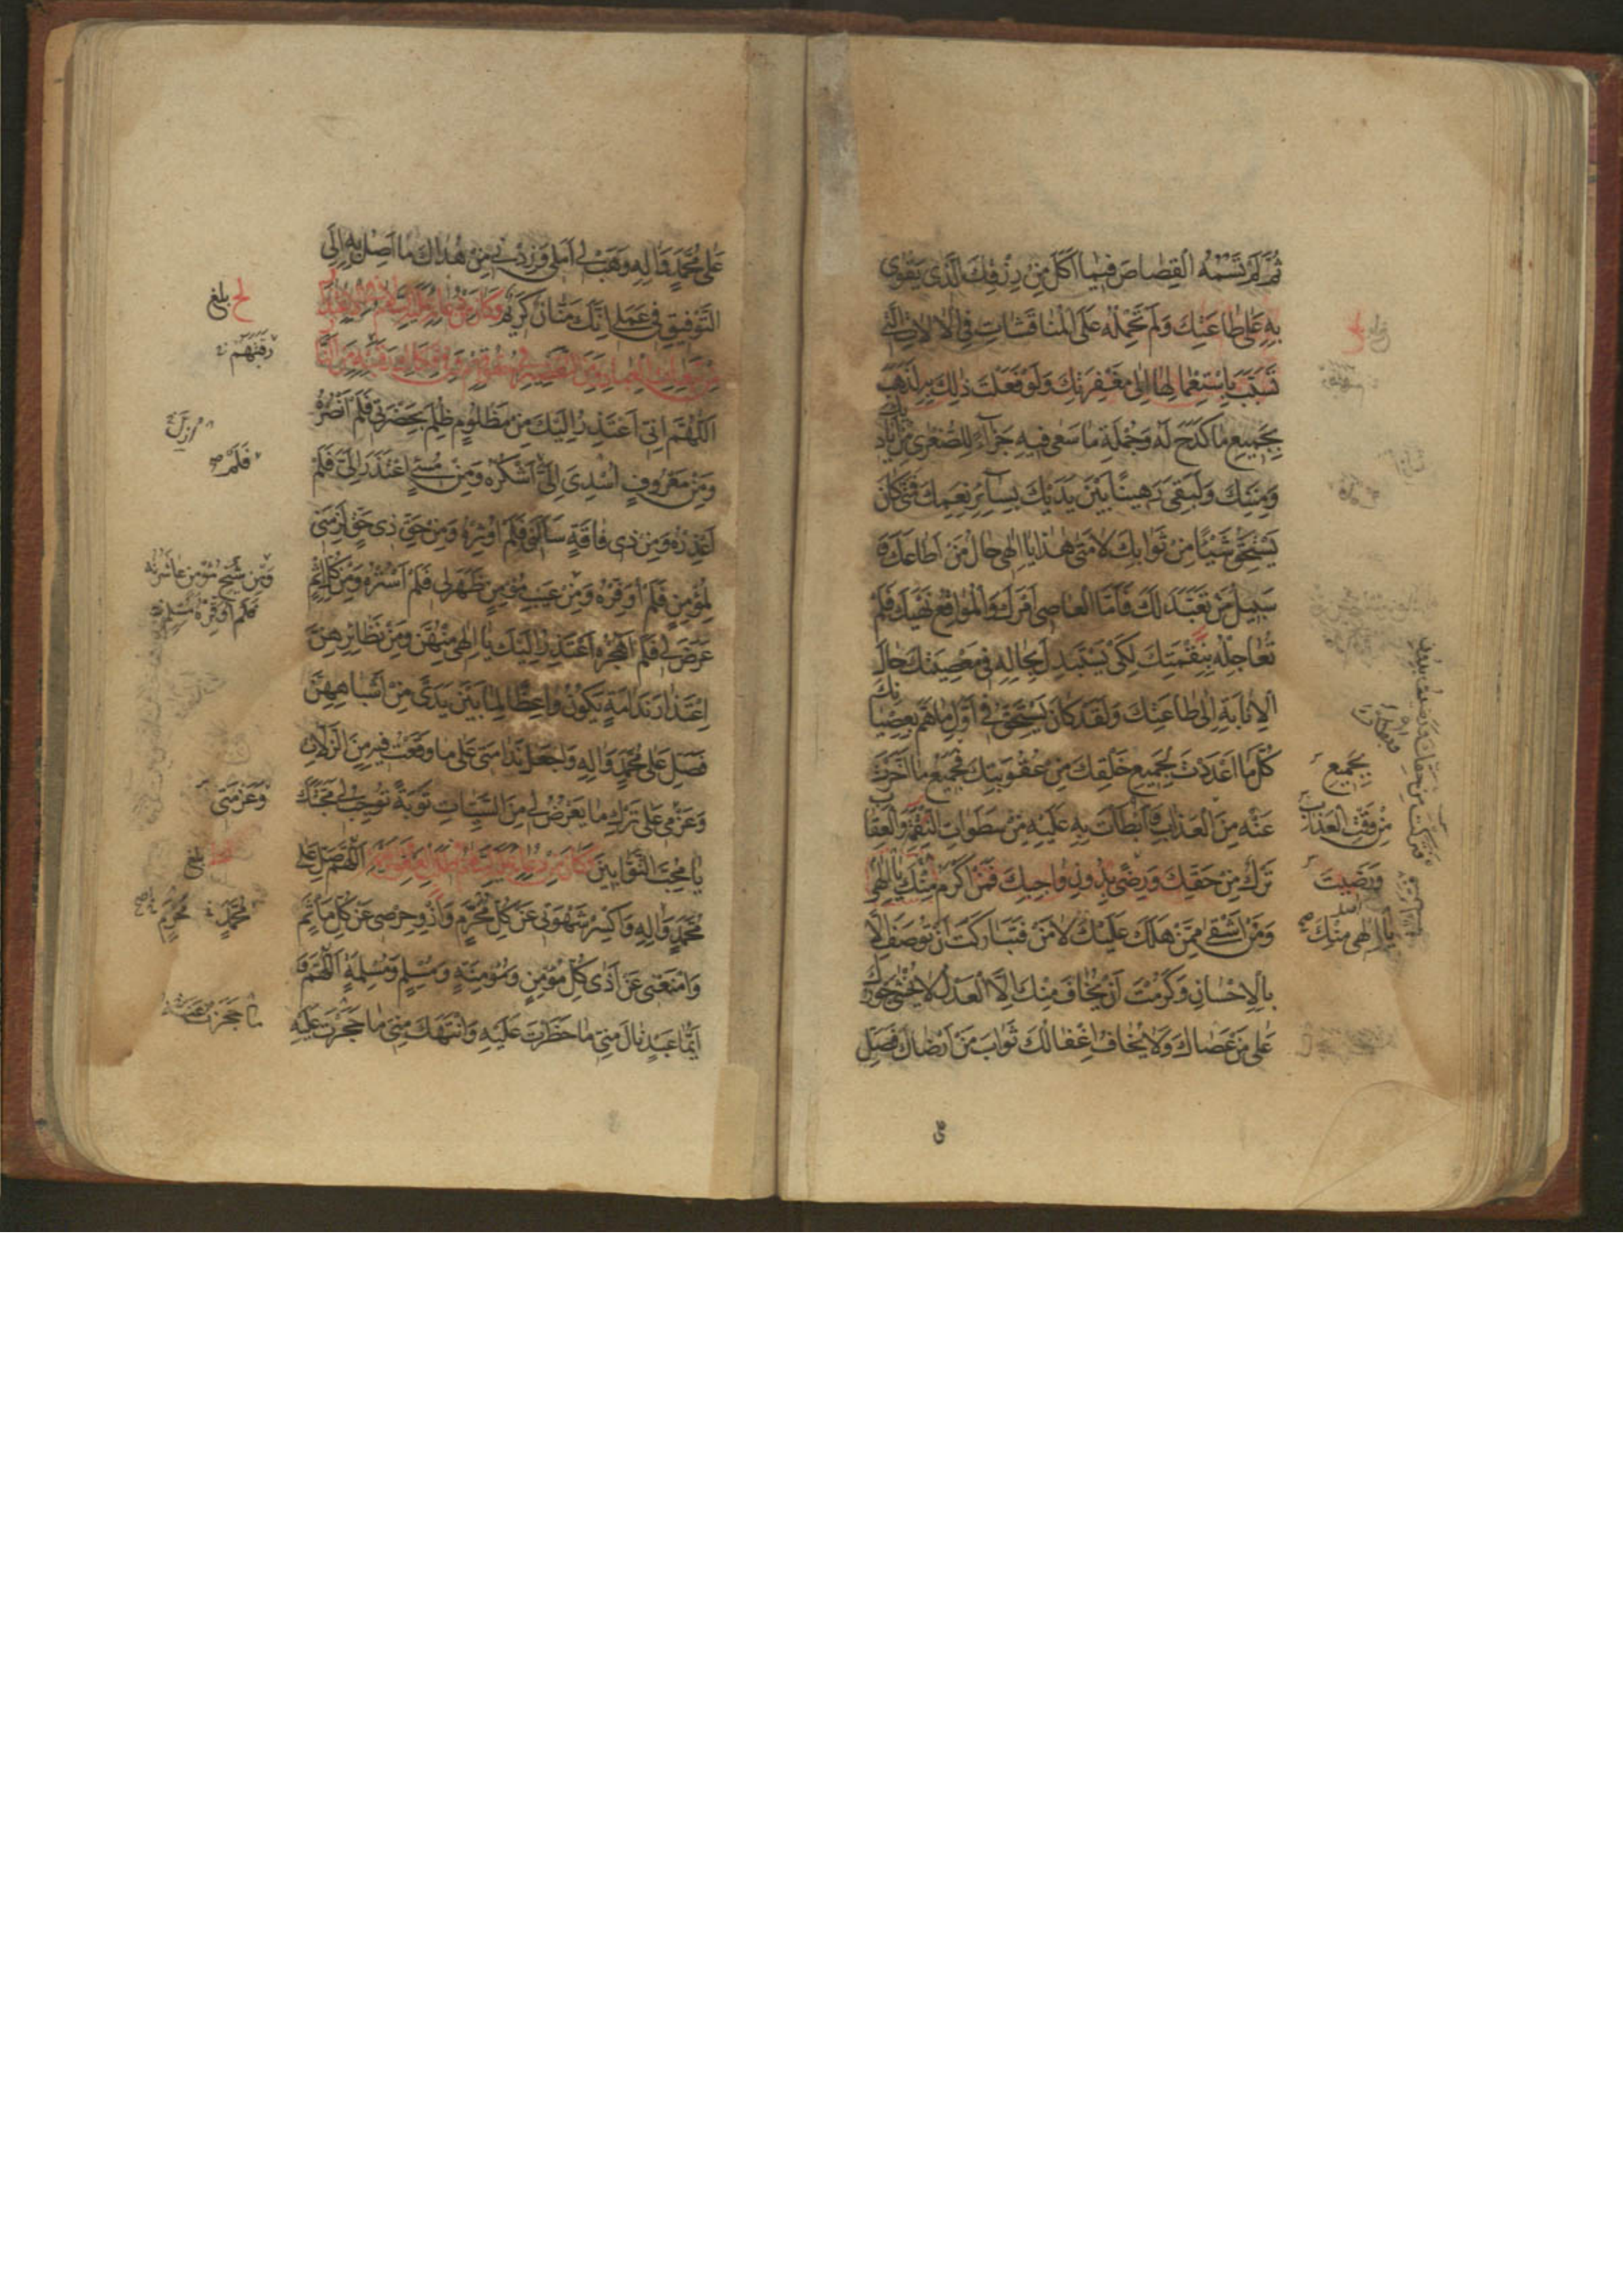 ثُمَّ لَمْ تَسُمْهُ الْقِصَاصَ فِيمَا أَكَلَ مِنْ رِزْقِكَ الَّذِي يَقْوَى
بِهِ عَلَى طَاعَتِكَ وَلَمْ تَحْمِلْهُ عَلَى الْمُنَاقَشَاتِ فِي الْآلَاتِ الَّتِي
تَسَبَّبَ بِاسْتِعْمَالِهَا إِلَى مَغْفِرَتِكَ وَلَوْ فَعَلْتَ ذَلِكَ بِهِ لَذَهَبَ
بِجَمِيعِ مَا كَدَحَ لَهُ وَجُمْلَةِ مَا سَعَى فِيهِ جَزَاءً لِلصُّغْرَى مِنْ أَيَادِيكَ
وَمِنَنِكَ وَلَبَقِيَ رَهِينًا بَيْنَ يَدَيْكَ بِسَائِرِ نِعَمِكَ فَمَتَى كَانَ
يَسْتَحِقُّ شَيْئًا مِنْ ثَوَابِكَ لَا مَتَى هَذَا يَا إِلَهِي حَالُ مَنْ أَطَاعَكَ وَ
سَبِيلُ مَنْ تَعَبَّدَ لَكَ فَأَمَّا الْعَاصِي أَمْرَكَ وَالْمُوَاقِعُ نَهْيَكَ فَلَمْ
تُعَاجِلْهُ بِنِقْمَتِكَ لِكَيْ يَسْتَبْدِلَ بِحَالِهِ فِي مَعْصِيَتِكَ حَالَ
الْإِنَابَةِ إِلَى طَاعَتِكَ وَلَقَدْ كَانَ يَسْتَحِقُّ فِي أَوَّلِ مَا هَمَّ بِعِصْيَانِكَ
كُلَّ مَا أَعْدَدْتَ لِجَمِيعِ خَلْقِكَ مِنْ عُقُوبَتِكَ فَجَمِيعُ مَا أَخَّرْتَ
عَنْهُ مِنَ الْعَذَابِ وَأَبْطَأْتَ بِهِ عَلَيْهِ مِنْ سَطَوَاتِ النَّقِمَةِ وَالْعِقَابِ
تَرْكٌ مِنْ حَقِّكَ وَرِضًى بِدُونِ وَاجِبِكَ فَمَنْ أَكْرَمُ مِنْكَ يَا إِلَهِي
وَمَنْ أَشْقَى مِمَّنْ هَلَكَ عَلَيْكَ لَا مَنْ فَتَبَارَكْتَ أَنْ تُوصَفَ إِلَّا
بِالْإِحْسَانِ وَكَرُمْتَ أَنْ يُخَافَ مِنْكَ إِلَّا الْعَدْلُ لَا يُخْشَى جَوْرُكَ
عَلَى مَنْ عَصَاكَ وَلَا يُخَافُ إِغْفَالُكَ ثَوَابَ مَنْ أَرْضَاكَ فَصَلِّ
بِجَمِيعِ
مِنْ وَقْتِ الْعَذَابِ
وَرَضِيتَ
يَا إِلَهِي مِنْكَ
عَلَى مُحَمَّدٍ وَآلِهِ وَهَبْ لِي أَمَلِي وَزِدْنِي مِنْ هُدَاكَ مَا أَصِلُ بِهِ إِلَى
التَّوْفِيقِ فِي عَمَلِي إِنَّكَ مَنَّانٌ كَرِيمٌ وَكَانَ مِنْ دُعَائِهِ عَلَيْهِ السَّلَامُ فِي الِاعْتِذَارِ
مِنْ تَبِعَاتِ الْعِبَادِ وَمِنَ التَّقْصِيرِ فِي حُقُوقِهِمْ وَفِي فَكَاكِ رَقَبَتِهِ مِنَ النَّارِ
اللَّهُمَّ إِنِّي أَعْتَذِرُ إِلَيْكَ مِنْ مَظْلُومٍ ظُلِمَ بِحَضْرَتِي فَلَمْ أَنْصُرْهُ
وَمِنْ مَعْرُوفٍ أُسْدِيَ إِلَيَّ أَشْكُرْهُ وَمِنْ مُسِيءٍ اعْتَذَرَ إِلَيَّ فَلَمْ
أَعْذِرْهُ وَمِنْ ذِي فَاقَةٍ سَأَلَنِي فَلَمْ أُوثِرْهُ وَمِنْ حَقِّ ذِي حَقٍّ لَزِمَنِي
لِمُؤْمِنٍ فَلَمْ أُوَفِّرْهُ وَمِنْ عَيْبِ مُؤْمِنٍ ظَهَرَ لِي فَلَمْ أَسْتُرْهُ وَمِنْ كُلِّ إِثْمٍ
عَرَضَ لِي فَلَمْ أَهْجُرْهُ أَعْتَذِرُ إِلَيْكَ يَا إِلَهِي مِنْهُنَّ وَمِنْ نَظَائِرِهِنَّ
اعْتِذَارَ نَدَامَةٍ يَكُونُ وَاعِظًا لِمَا بَيْنَ يَدَيَّ مِنْ أَشْبَاهِهِنَّ
فَصَلِّ عَلَى مُحَمَّدٍ وَآلِهِ وَاجْعَلْ نَدَامَتِي عَلَى مَا وَقَعْتُ فِيهِ مِنَ الزَّلَّاتِ
وَعَزْمِي عَلَى تَرْكِ مَا يَعْرِضُ لِي مِنَ السَّيِّئَاتِ تَوْبَةً تُوجِبُ لِي مَحَبَّتَكَ
يَا مُحِبَّ التَّوَّابِينَ وَكَانَ مِنْ دُعَائِهِ عَلَيْهِ السَّلَامُ فِي طَلَبِ الْعَفْوِ اللَّهُمَّ صَلِّ عَلَى
مُحَمَّدٍ وَآلِهِ وَاكْسِرْ شَهْوَتِي عَنْ كُلِّ مَحْرَمٍ وَازْوِ حِرْصِي عَنْ كُلِّ مَأْثَمٍ
وَامْنَعْنِي عَنْ أَذَى كُلِّ مُؤْمِنٍ وَمُؤْمِنَةٍ وَمُسْلِمٍ وَمُسْلِمَةٍ اللَّهُمَّ وَ
أَيُّمَا عَبْدٍ نَالَ مِنِّي مَا حَظَرْتَ عَلَيْهِ وَانْتَهَكَ مِنِّي مَا حَجَرْتَ عَلَيْهِ
بلغ
رَقَبَتِهِمْ
فَلَمْ
بلغ
مُحَمَّدٍ
مُحَرَّمٍ